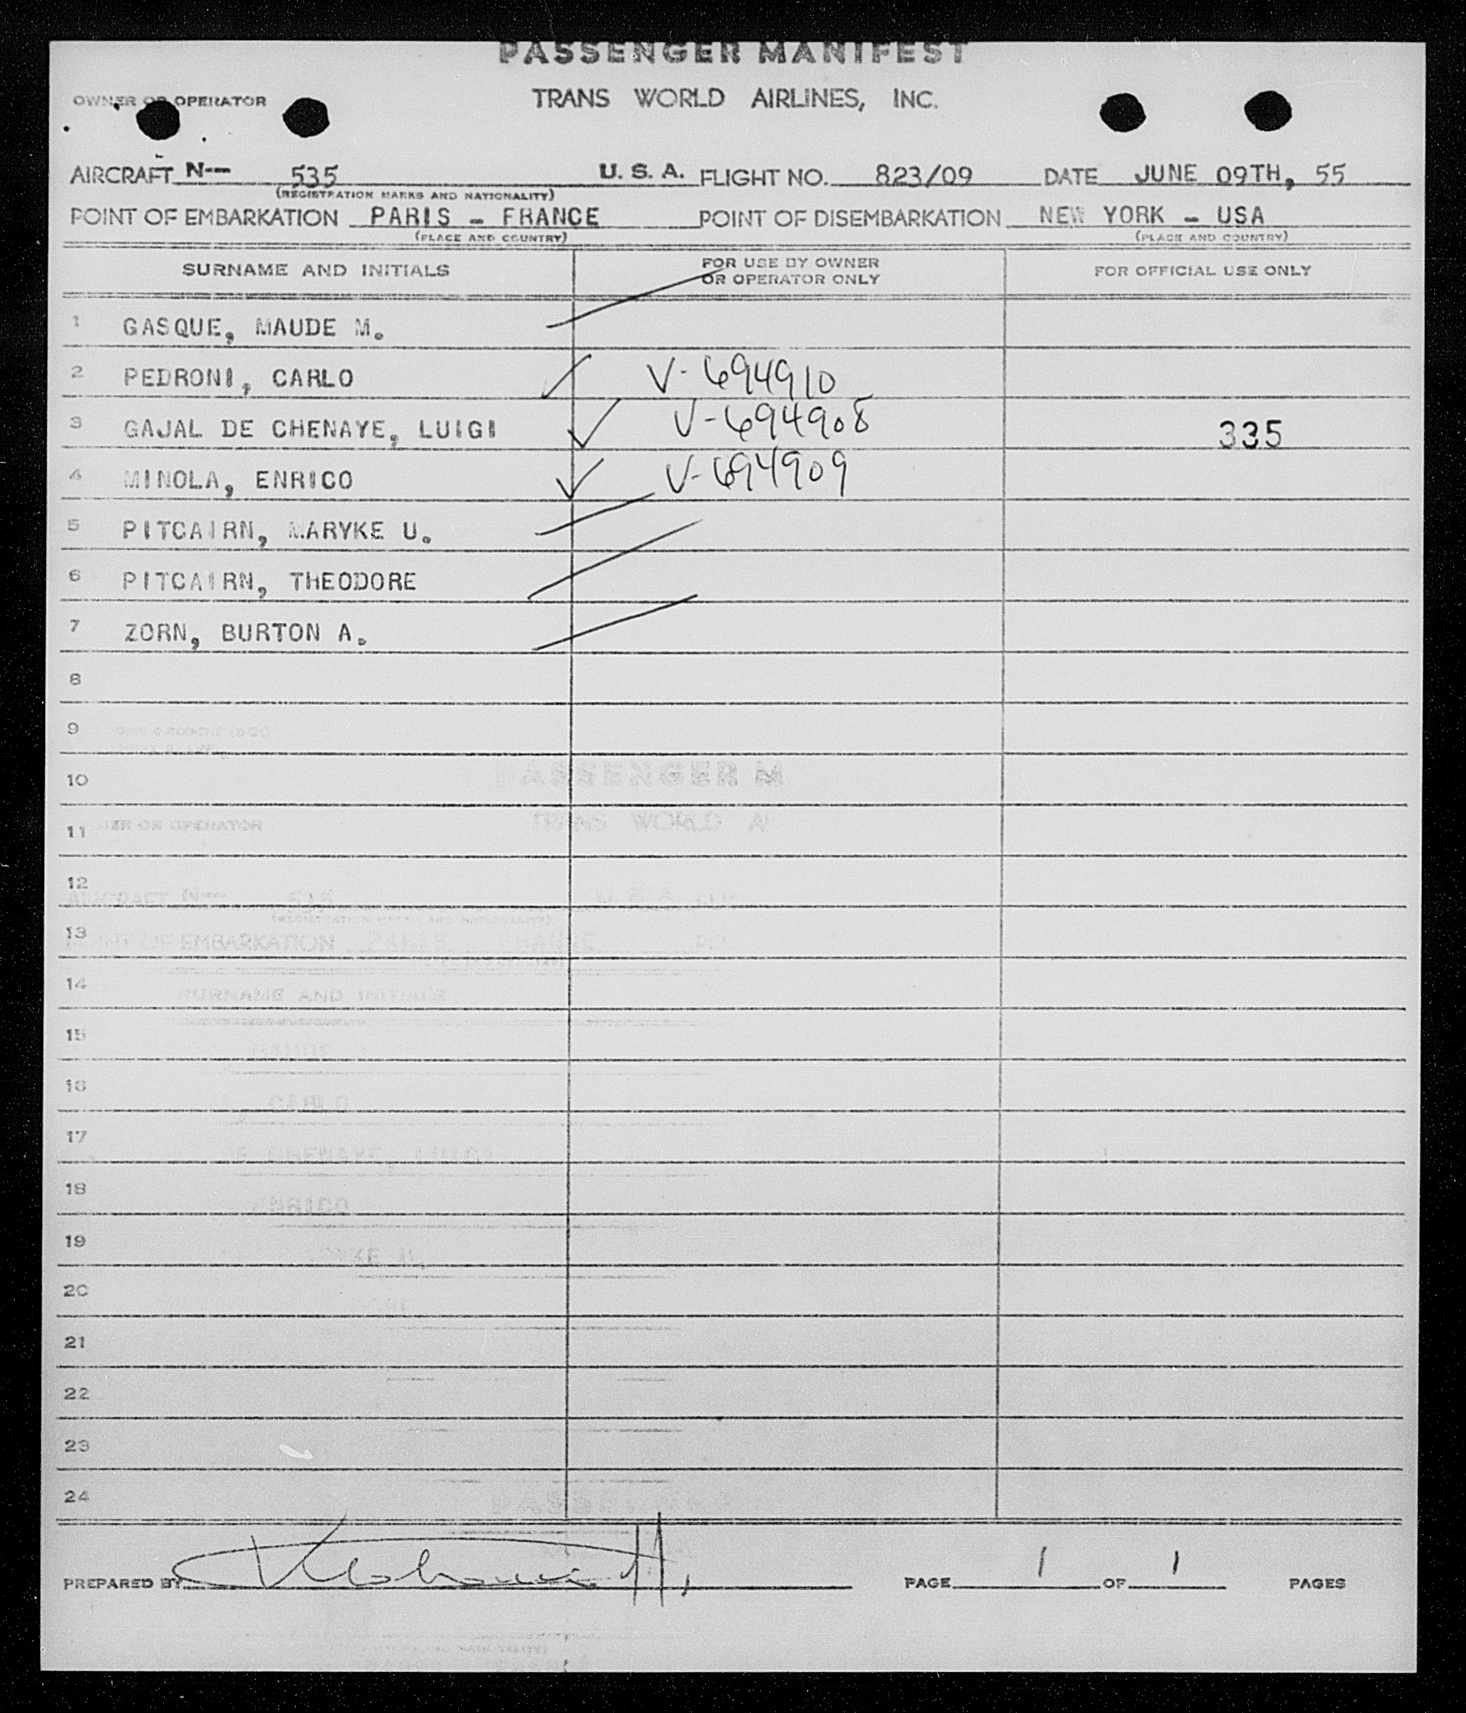 PASSENGER MANIFEST
OWNER OR OPERATOR TRANS WORLD AIRLINES, INC.
AIRCRAFT N-- 535 U. S. A. FLIGHT NO. 823/09 DATE JUNE 09TH, 55
(REGISTRATION MARKS AND NATIONALITY)
POINT OF EMBARKATION PARIS - FRANCE POINT OF DISEMBARKATION NEW YORK - USA
(PLACE AND COUNTRY) (PLACE AND COUNTRY)
SURNAME AND INITIALS FOR USE BY OWNER OR OPERATOR ONLY FOR OFFICIAL USE ONLY
1 GASQUE, MAUDE M.
2 PEDRONI, CARLO V-694910
3 GAJAL DE CHENAYE, LUIGI V-694908 335
4 MINOLA, ENRICO V-694909
5 PITCAIRN, MARYKE U.
6 PITCAIRN, THEODORE
7 ZORN, BURTON A.
8
9
10
11
12
13
14
15
16
17
18
19
20
21
22
23
24
PREPARED BY PAGE 1 OF 1 PAGES